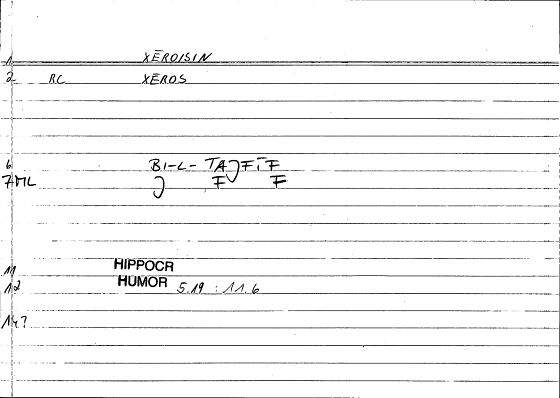 1 XĒROISIN
2 RC XĒROS
6 BI-L-TA
7 ML
11 HIPPOCR
12 HUMOR 5.19 : 11.6
14?